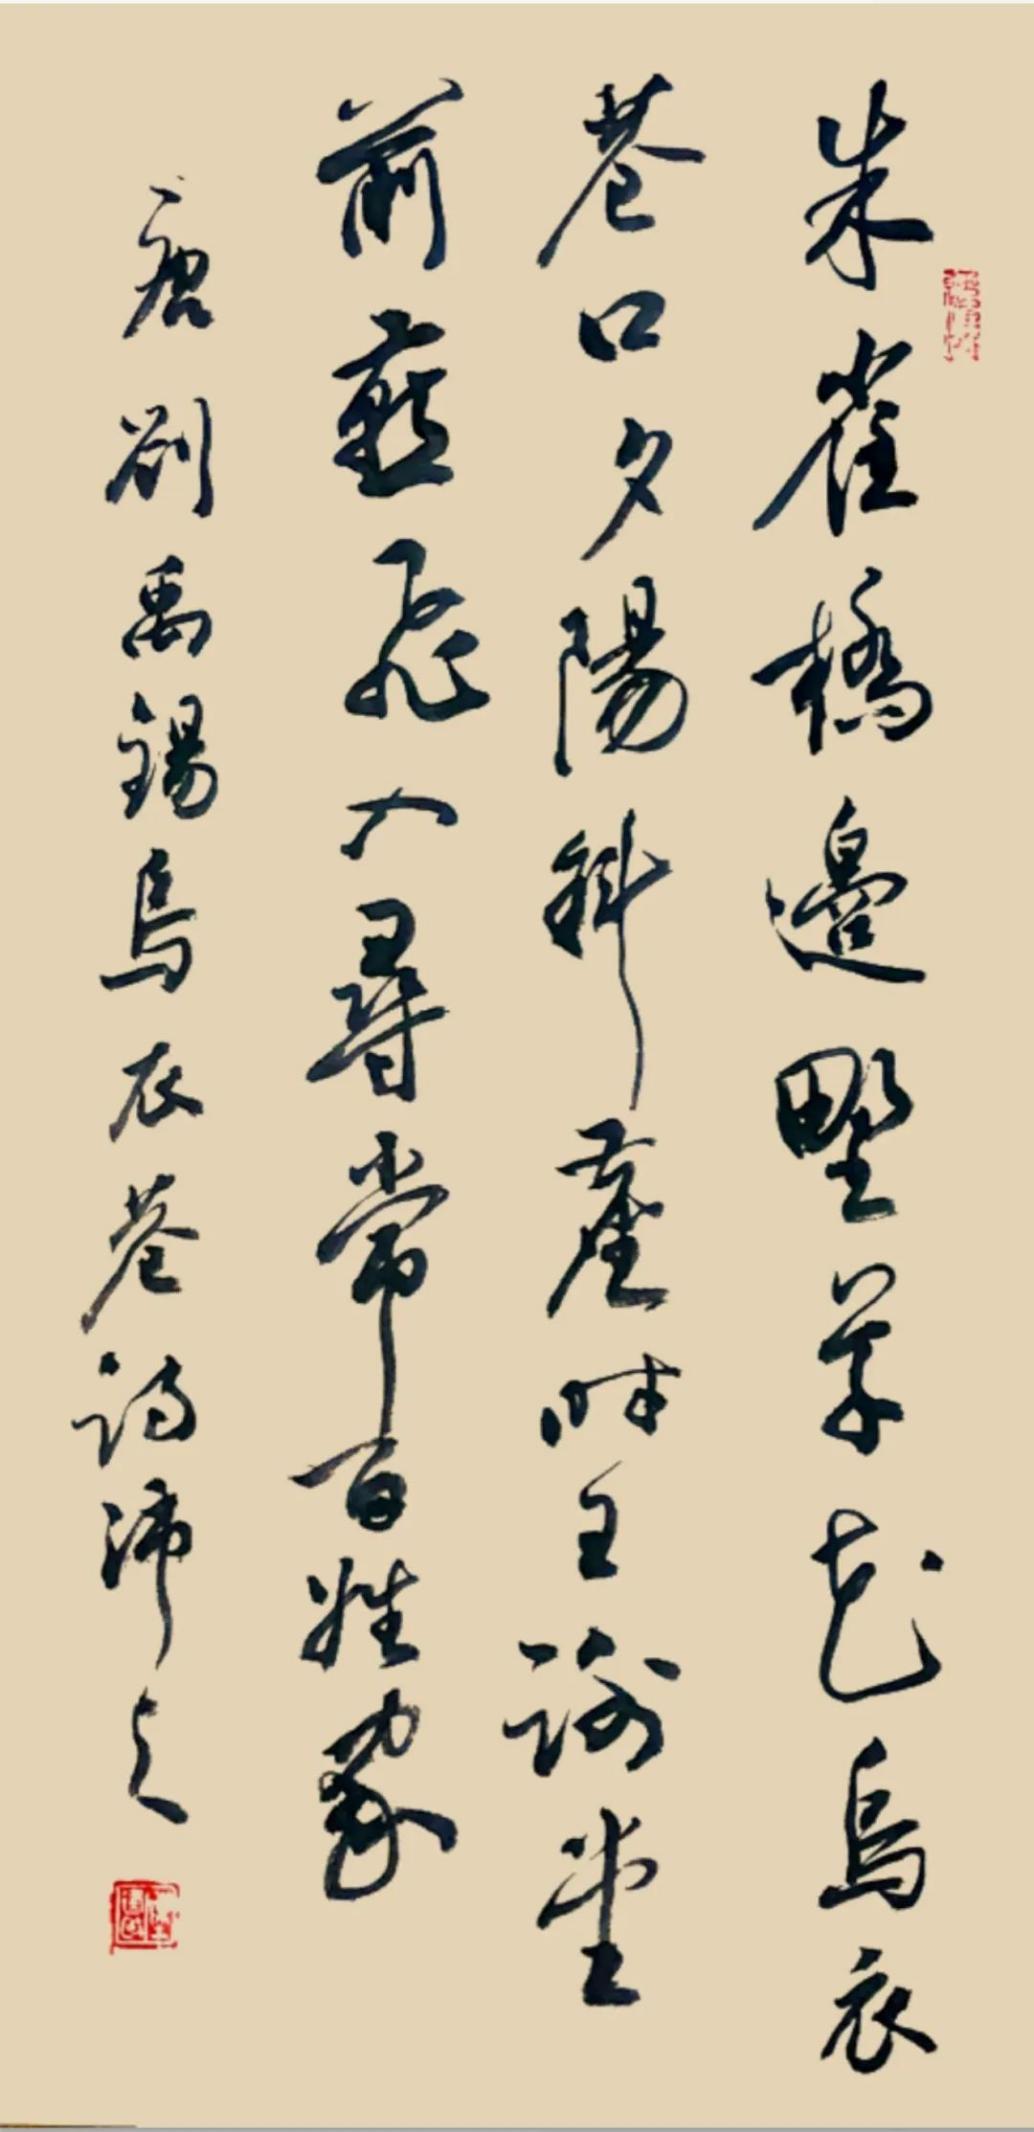 朱雀橋邊野草花烏衣
巷口夕陽斜舊時王謝堂
前燕飛入尋常百姓家
唐劉禹錫烏衣巷詩沛之